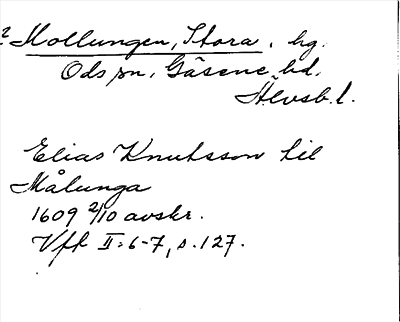 ? Mollungen, Stora, hg.
Ods sn, Gäsene hd,
Älvsb. l.
Elias Knutsson till
Målunga
1609 2/10 avskr.
Vfk II:6-7, s. 127.